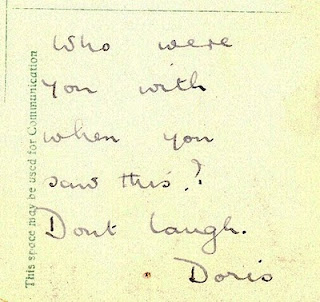 Who were
you with
when you
saw this.?
Dont laugh.
Doris
This space may be used for Communication